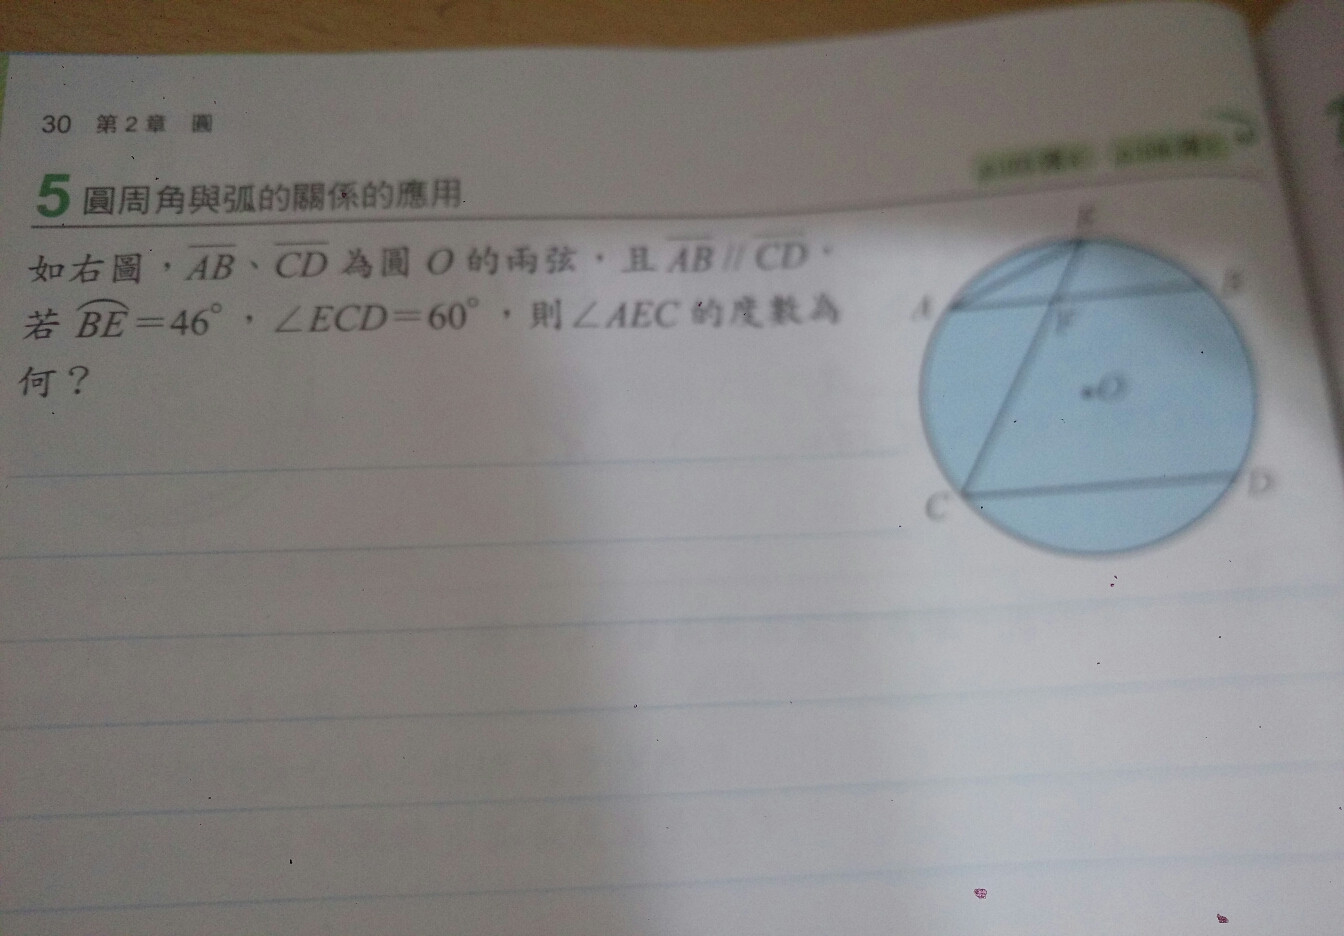 30 第2章 圓
5 圓周角與弧的關係的應用
如右圖，AB、CD 為圓 O 的兩弦，且 AB // CD，
若 BE=46°，∠ECD=60°，則∠AEC 的度數為
何？
E
A
B
F
O
C
D